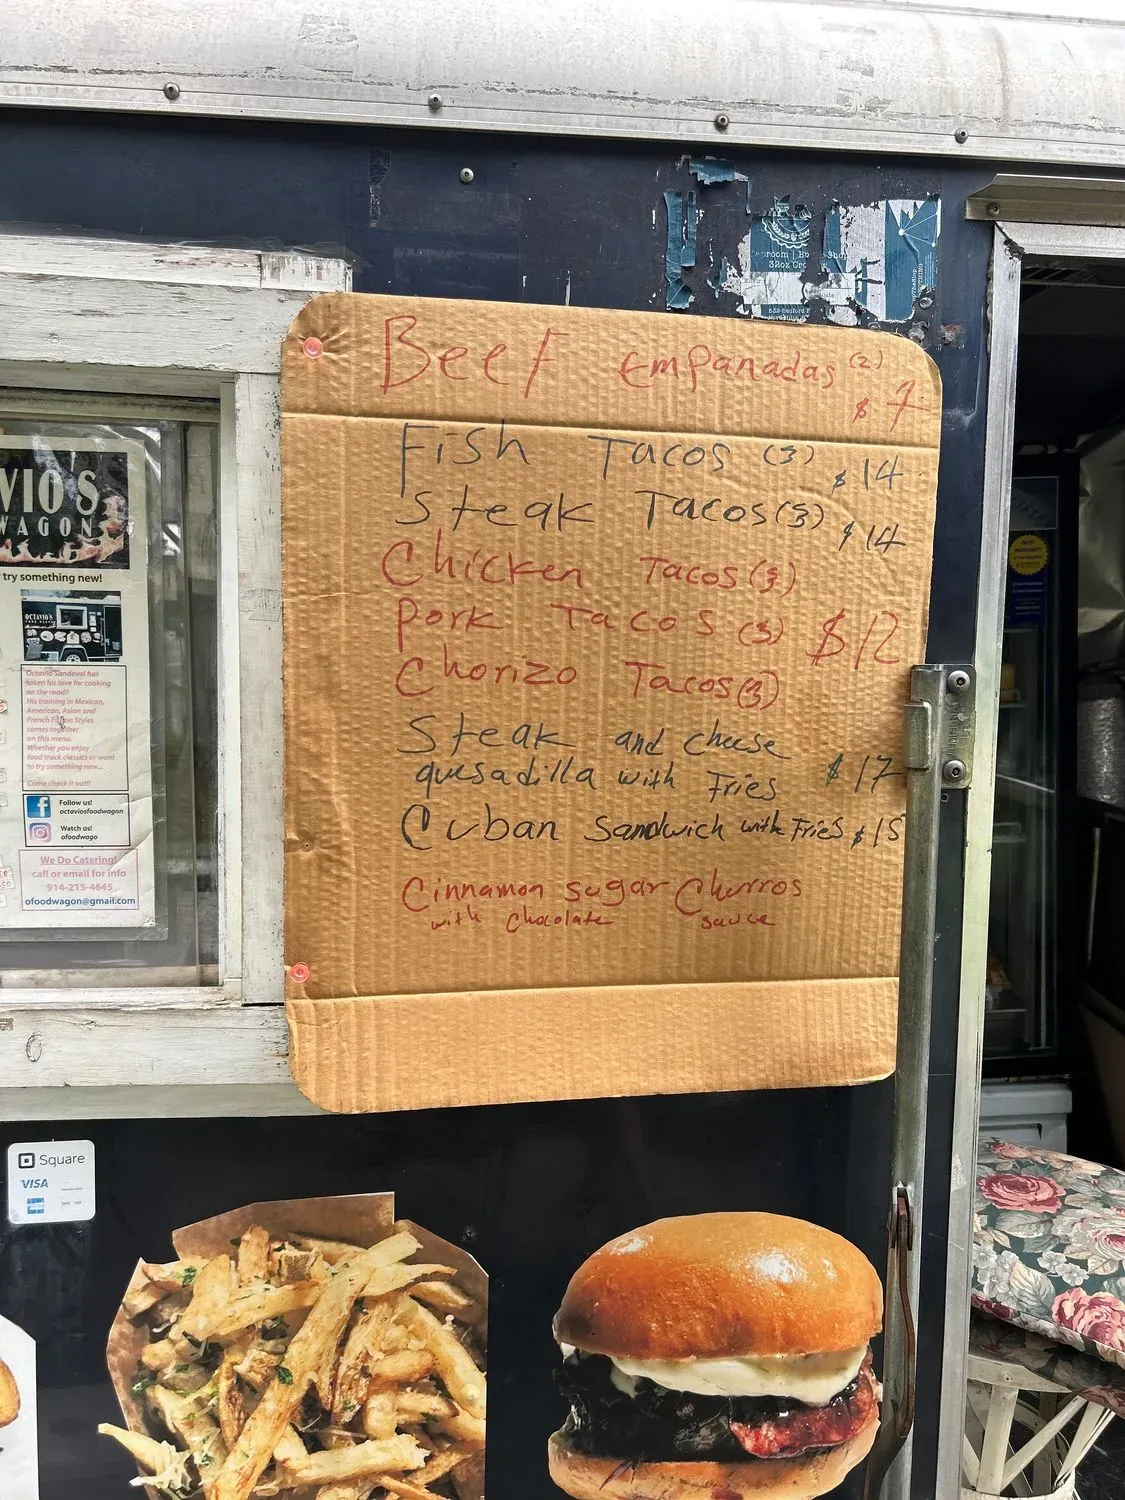 Beef Empanadas (2)
$7
Fish Tacos (3) $14
Steak Tacos (3) $14
Chicken Tacos (3)
Pork Tacos (3) $12
Chorizo Tacos (3)
Steak and cheese
quesadilla with Fries $17
Cuban Sandwich with Fries $15
Cinnamon sugar Churros
with chocolate sauce
VIO'S
WAGON
try something new!
OCTAVIO'S
Octavio Sandoval has
taken his love for cooking
on the road!!
His training in Mexican,
American, Asian and
French Fusion Styles
comes together
on this menu.
Whether you enjoy
food truck classics or want
to try something new...
Come check it out!!
Follow us!
octaviosfoodwagon
Watch us!
ofoodwago
We Do Catering!
call or email for info
914-215-4645
ofoodwagon@gmail.com
Square
VISA
32oz